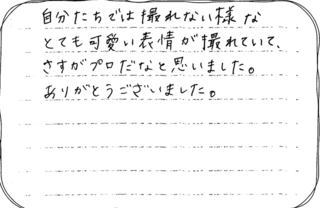 自分たちでは撮れない様な
とても可愛い表情が撮れていて、
さすがプロだなと思いました。
ありがとうございました。